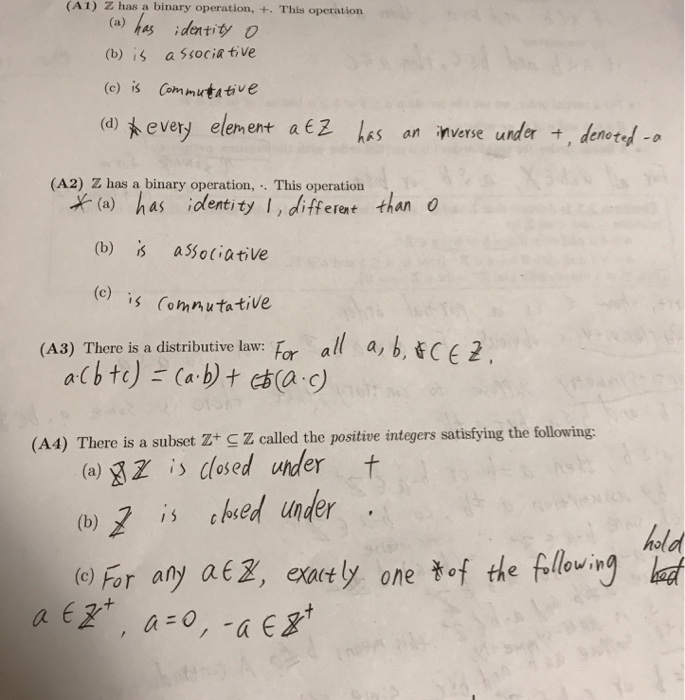 (A1) ℤ has a binary operation, +. This operation
(a) has identity 0
(b) is associative
(c) is commutative
(d) every element a∈ℤ has an inverse under +, denoted -a
(A2) ℤ has a binary operation, ·. This operation
(a) has identity 1, different than 0
(b) is associative
(c) is commutative
(A3) There is a distributive law: For all a, b, c∈ℤ,
a·(b+c) = (a·b) + (a·c)
(A4) There is a subset ℤ⁺ ⊆ ℤ called the positive integers satisfying the following:
(a) ℤ is closed under +
(b) ℤ is closed under ·
(c) For any a∈ℤ, exactly one of the following hold
a∈ℤ⁺, a=0, -a∈ℤ⁺